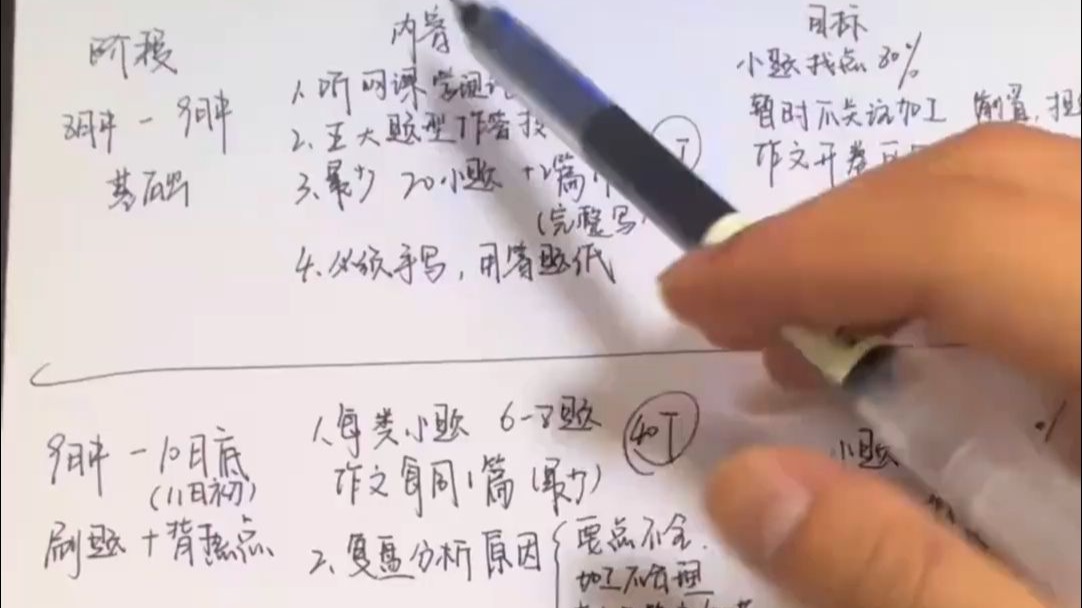 阶段 内容 目标
小题找点 80%
8月中 - 9月中
基础
1. 听网课学理论
2. 五大题型作答技
3. 最少 20小题 + 2篇
(完整写
4. 必须手写，用答题纸
暂时不关注加工 前置，
作文开卷
9月中 - 10月底
(11月初)
刷题 + 背热点
1. 每类小题 6-8题
作文每周1篇 (最少)
40T
2. 复盘分析原因
要点不全.
加工不合理
小题